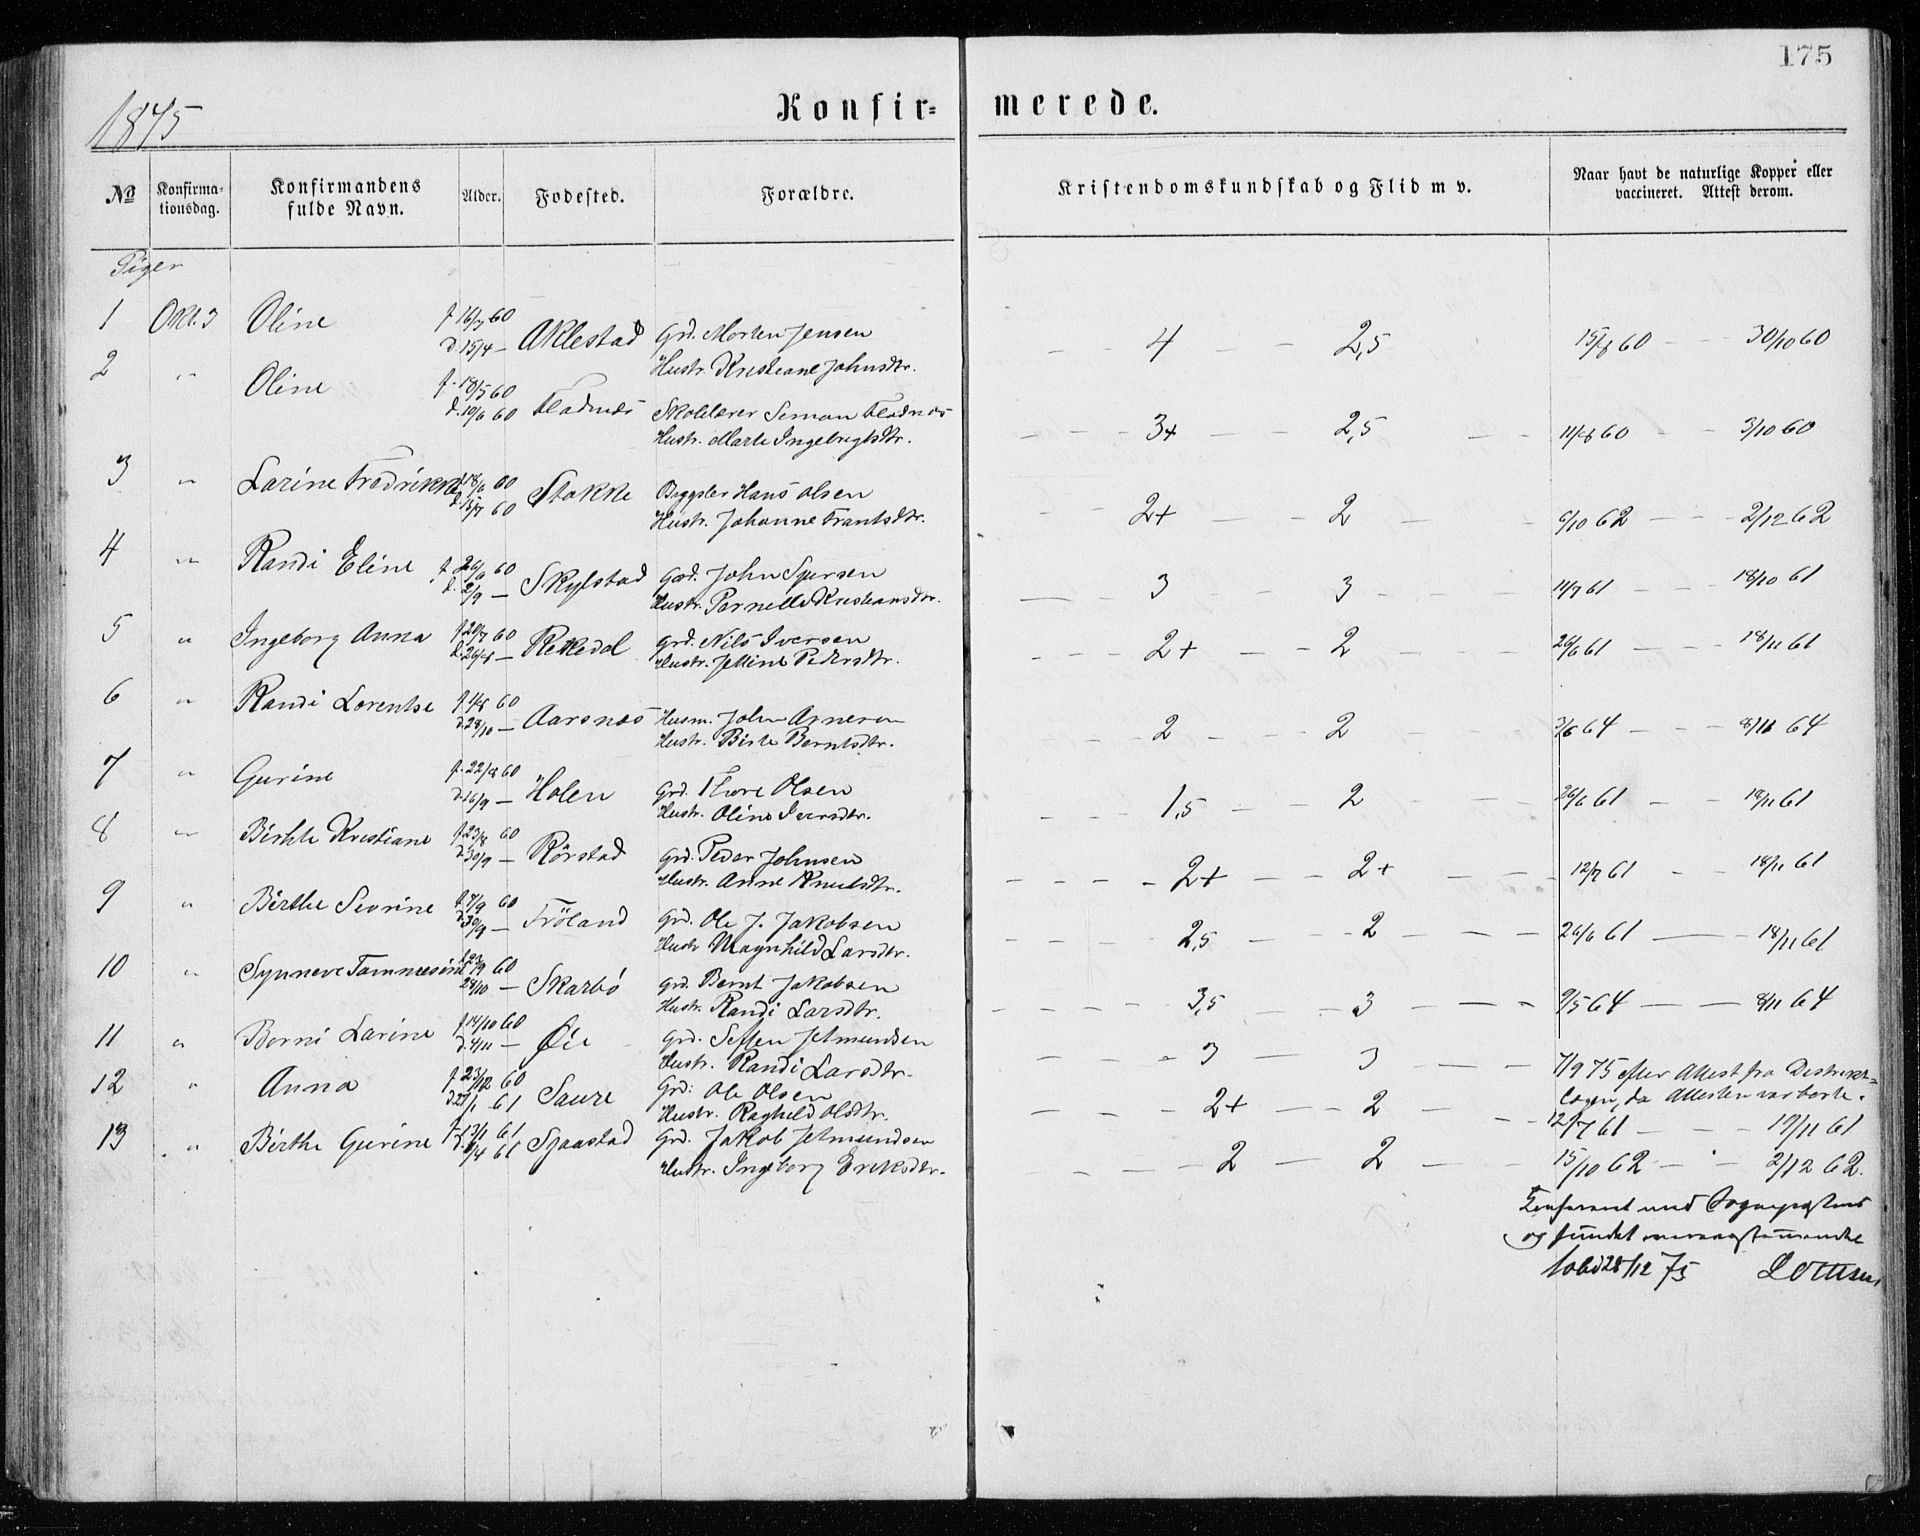 175
1875
Konfir= merede.
№ Konfirma-tionsdag. Konfirmandens fulde Navn. Alder. Fodested. Forældre. Kristendomskundskab og Flid m v. Naar havt de naturlige Kopper eller vaccineret. Attest derom.
Piger
1 Okt. 3 Oline f. 16/3 60 d. 15/4 — Aklestad Grd. Morten Jensen 4 2,5 15/8 60 30/10 60
Hustr. Kristiane Johnsdtr.
2 " Oline f. 18/5 60 d. 10/6 60 Fladnæs Skolelærer Simon Fladnæs 3+ 2,5 11/8 60 3/10 60
Hustr. Marte Ingebrigtsdtr.
3 " Larine Fredrikke 18/6 60 d. 15/7 60 Stokke Bygsler Hans Olsen 2+ 2 6/10 62 2/12 62
Hustr. Johanne Frantsdtr.
4 " Randi Eline f. 26/6 60 d. 2/9 — Skylstad Grd. John Syvrsen 3 3 11/7 61 18/10 61
Hustr. Pernille Kristiansdtr.
5 " Ingeborg Anna f. 20/7 60 d. 26/8 — Rekkedal Grd. Nils Iversen 2+ 2 26/6 61 18/11 61
Hustr. Jetine Pedersdtr.
6 " Randi Lorentse f. 4/8 60 d. 28/10 — Aarsnæs Husm. John Arnesen 2 2 3/6 64 8/11 64
Hustr. Birte Berntsdtr.
7 " Gurine f. 22/8 60 d. 16/9 — Holen Grd. Thore Olsen 1,5 2 26/6 61 18/11 61
Hustr. Oline Iversdtr.
8 " Birthe Kristiane f. 23/8 60 d. 30/9 — Rörstad Grd. Peder Johnsen 2+ 2+ 12/7 61 18/11 61
Hustr. Anne Knutsdtr.
9 " Birthe Sevrine f. 7/9 60 d. 30/9 — Fröland Grd. Ole J. Jakobsen 2,5 2 26/6 61 18/11 61
Hustr. Magnhild Larsdtr.
10 " Synneve Tommesine f. 23/9 60 28/10 — Skarbö Grd. Bernt Jakobsen 3,5 3 9/5 64 8/11 64
Hustr. Randi Larsdtr.
11 " Berni Larine f. 14/10 60 d. 4/11 — Øie Grd. Steffen Jetmundsen 3 3 7/9 75 efter Attest fra Distrikt=
Hustr. Randi Larsdtr. lægen, da Attesten var borte.
12 " Anna f. 23/12 60 d. 27/1 61 Saure Grd. Ole Olsen 2+ 2 12/7 61 19/11 61
Hustr. Raghild Olsdtr.
13 " Birthe Gurine f. 13/1 61 d. 1/4 61 Sjaastad Grd. Jakob Jetmundsen 2 2 15/10 62 2/12 62.
Hustr. Ingeborg Eriksdtr.
Konfereret med Sognepræstens
og fundet overensstemmende
28/12 75